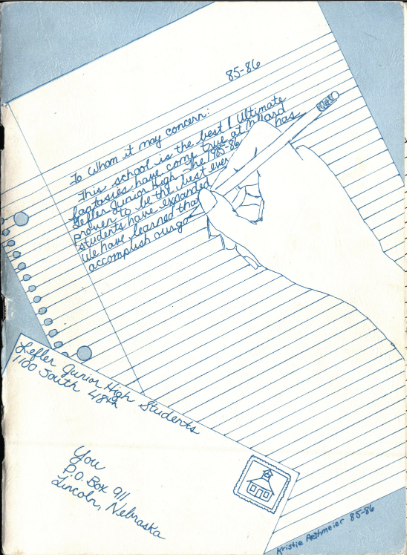 85-86
To Whom it may concern:
This school is the best! Ultimate
fantasies have come true at Millard
Lefler Junior High. The 1985-86 has
proven to be the best ever
students have expanded
We have learned that
accomplish our go
Lefler Junior High Students
1100 South 48th
You
P.O. Box 911
Lincoln, Nebraska
Kristie 85-86